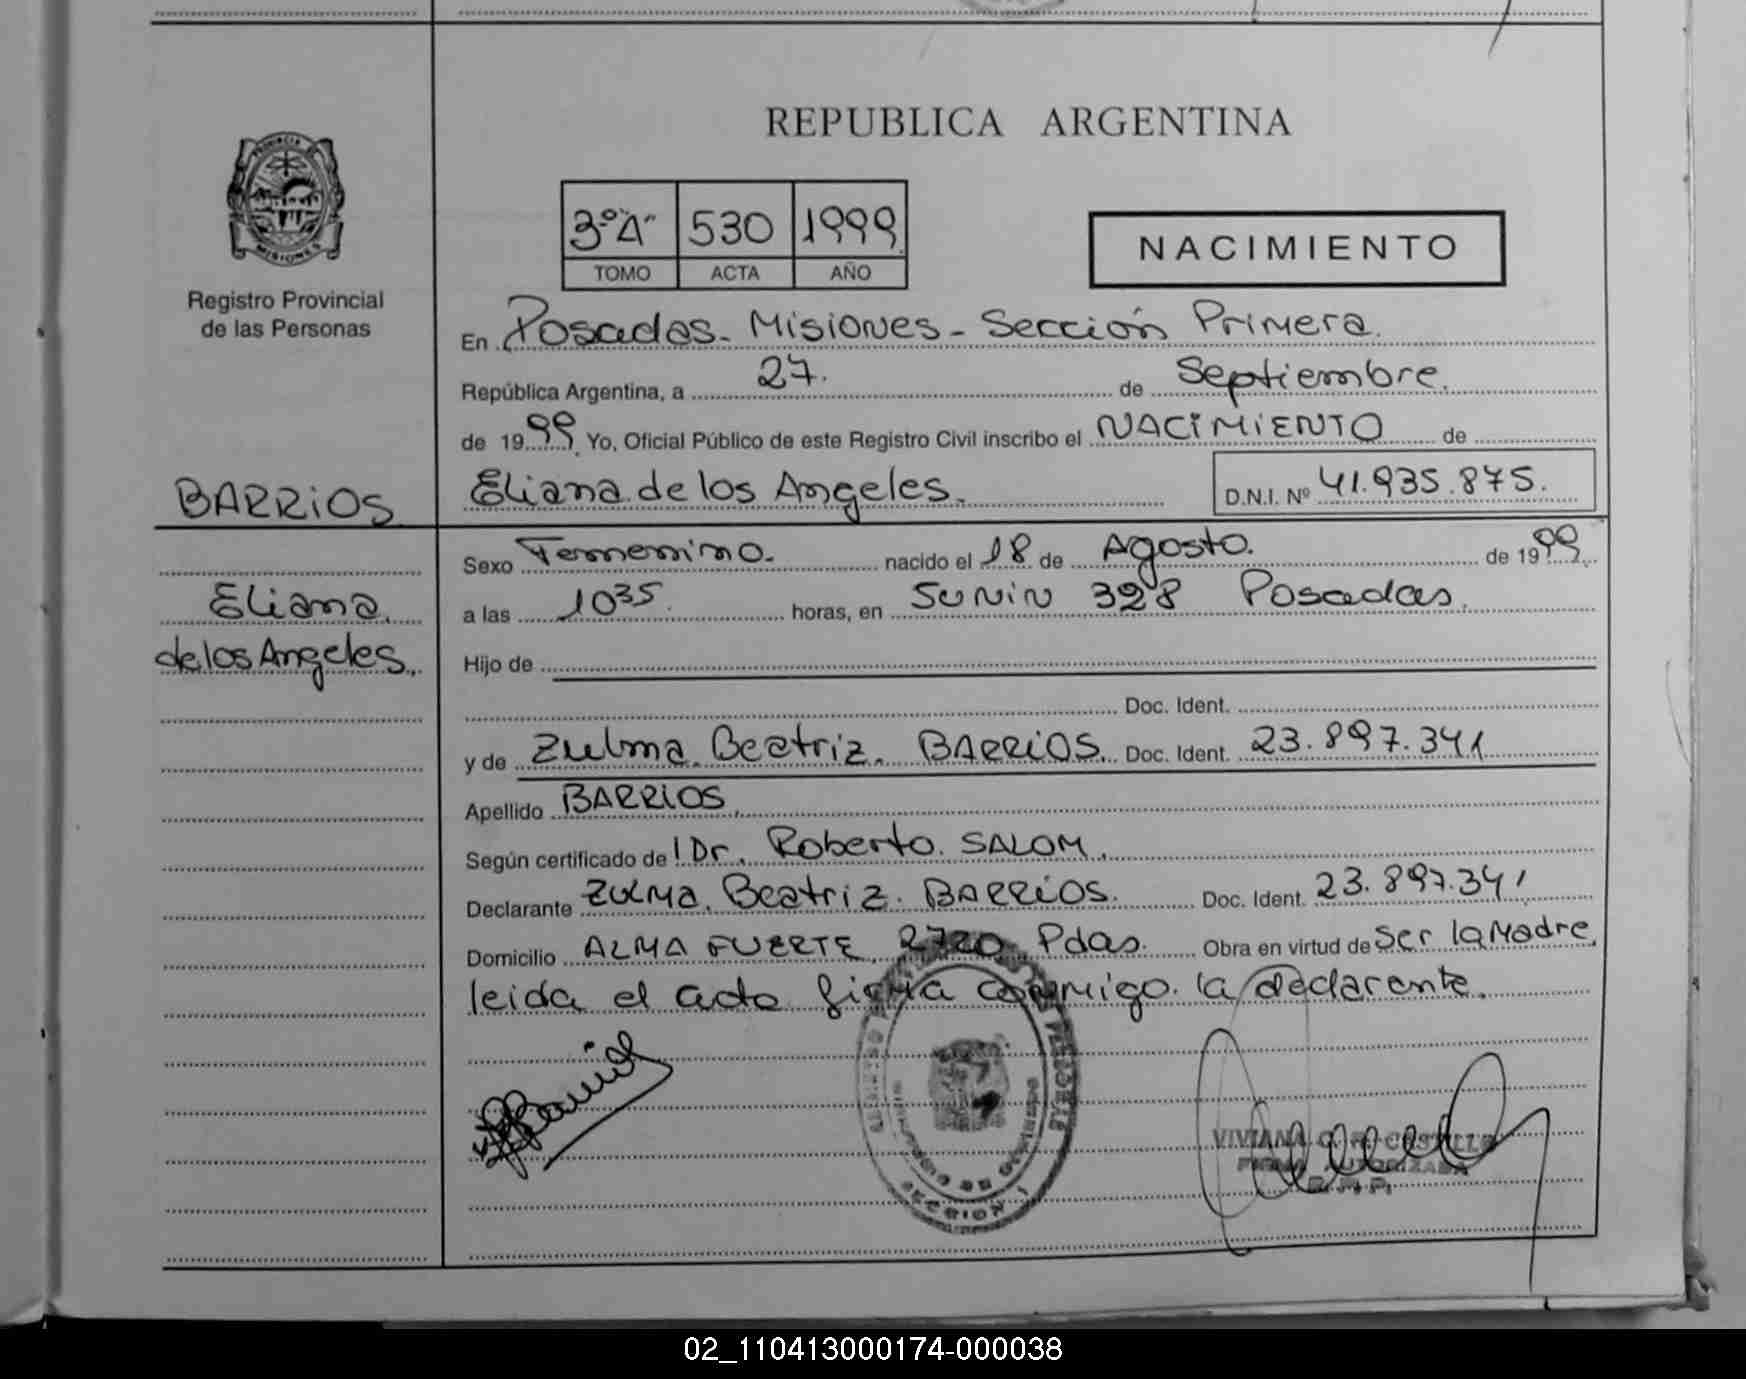 REPUBLICA ARGENTINA
PROVINCIA DE
MISIONES
Registro Provincial
de las Personas
3º"A" 530 1999
TOMO ACTA AÑO
NACIMIENTO
En Posadas - Misiones - Sección Primera.
República Argentina, a 27. de Septiembre.
de 1999 Yo, Oficial Público de este Registro Civil inscribo el NACIMIENTO de
BARRIOS
Eliana de los Angeles.
D.N.I. Nº 41.935.875.
Eliana
de los Angeles.
Sexo Femenino. nacido el 18 de Agosto. de 1999.
a las 10 35. horas, en Junin 328 Posadas.
Hijo de
Doc. Ident.
y de Zulma Beatriz. BARRIOS. Doc. Ident. 23.897.341
Apellido BARRIOS
Según certificado de Dr. Roberto SALOM.
Declarante Zulma Beatriz. BARRIOS. Doc. Ident. 23.897.341
Domicilio ALMA FUERTE 2720 Pdas. Obra en virtud de Ser la Madre
leida el acta firma conmigo la declarante.
SECCION 1
FIRMA AUTORIZADA
02_110413000174-000038